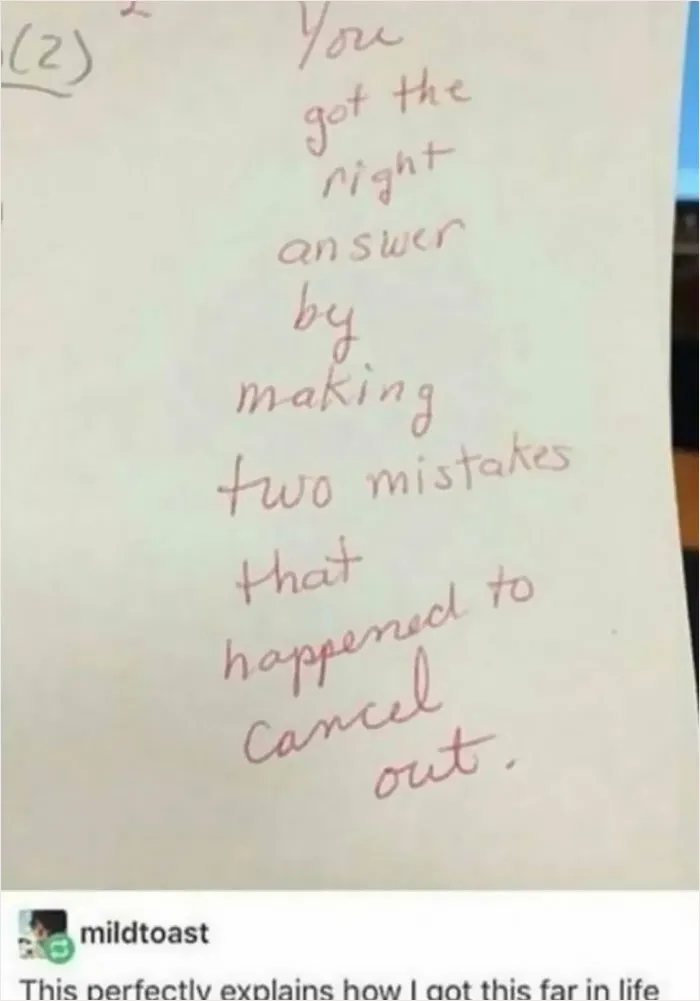 (2)
You
got the
right
answer
by
making
two mistakes
that
happened to
cancel
out.
mildtoast
This perfectly explains how I got this far in life